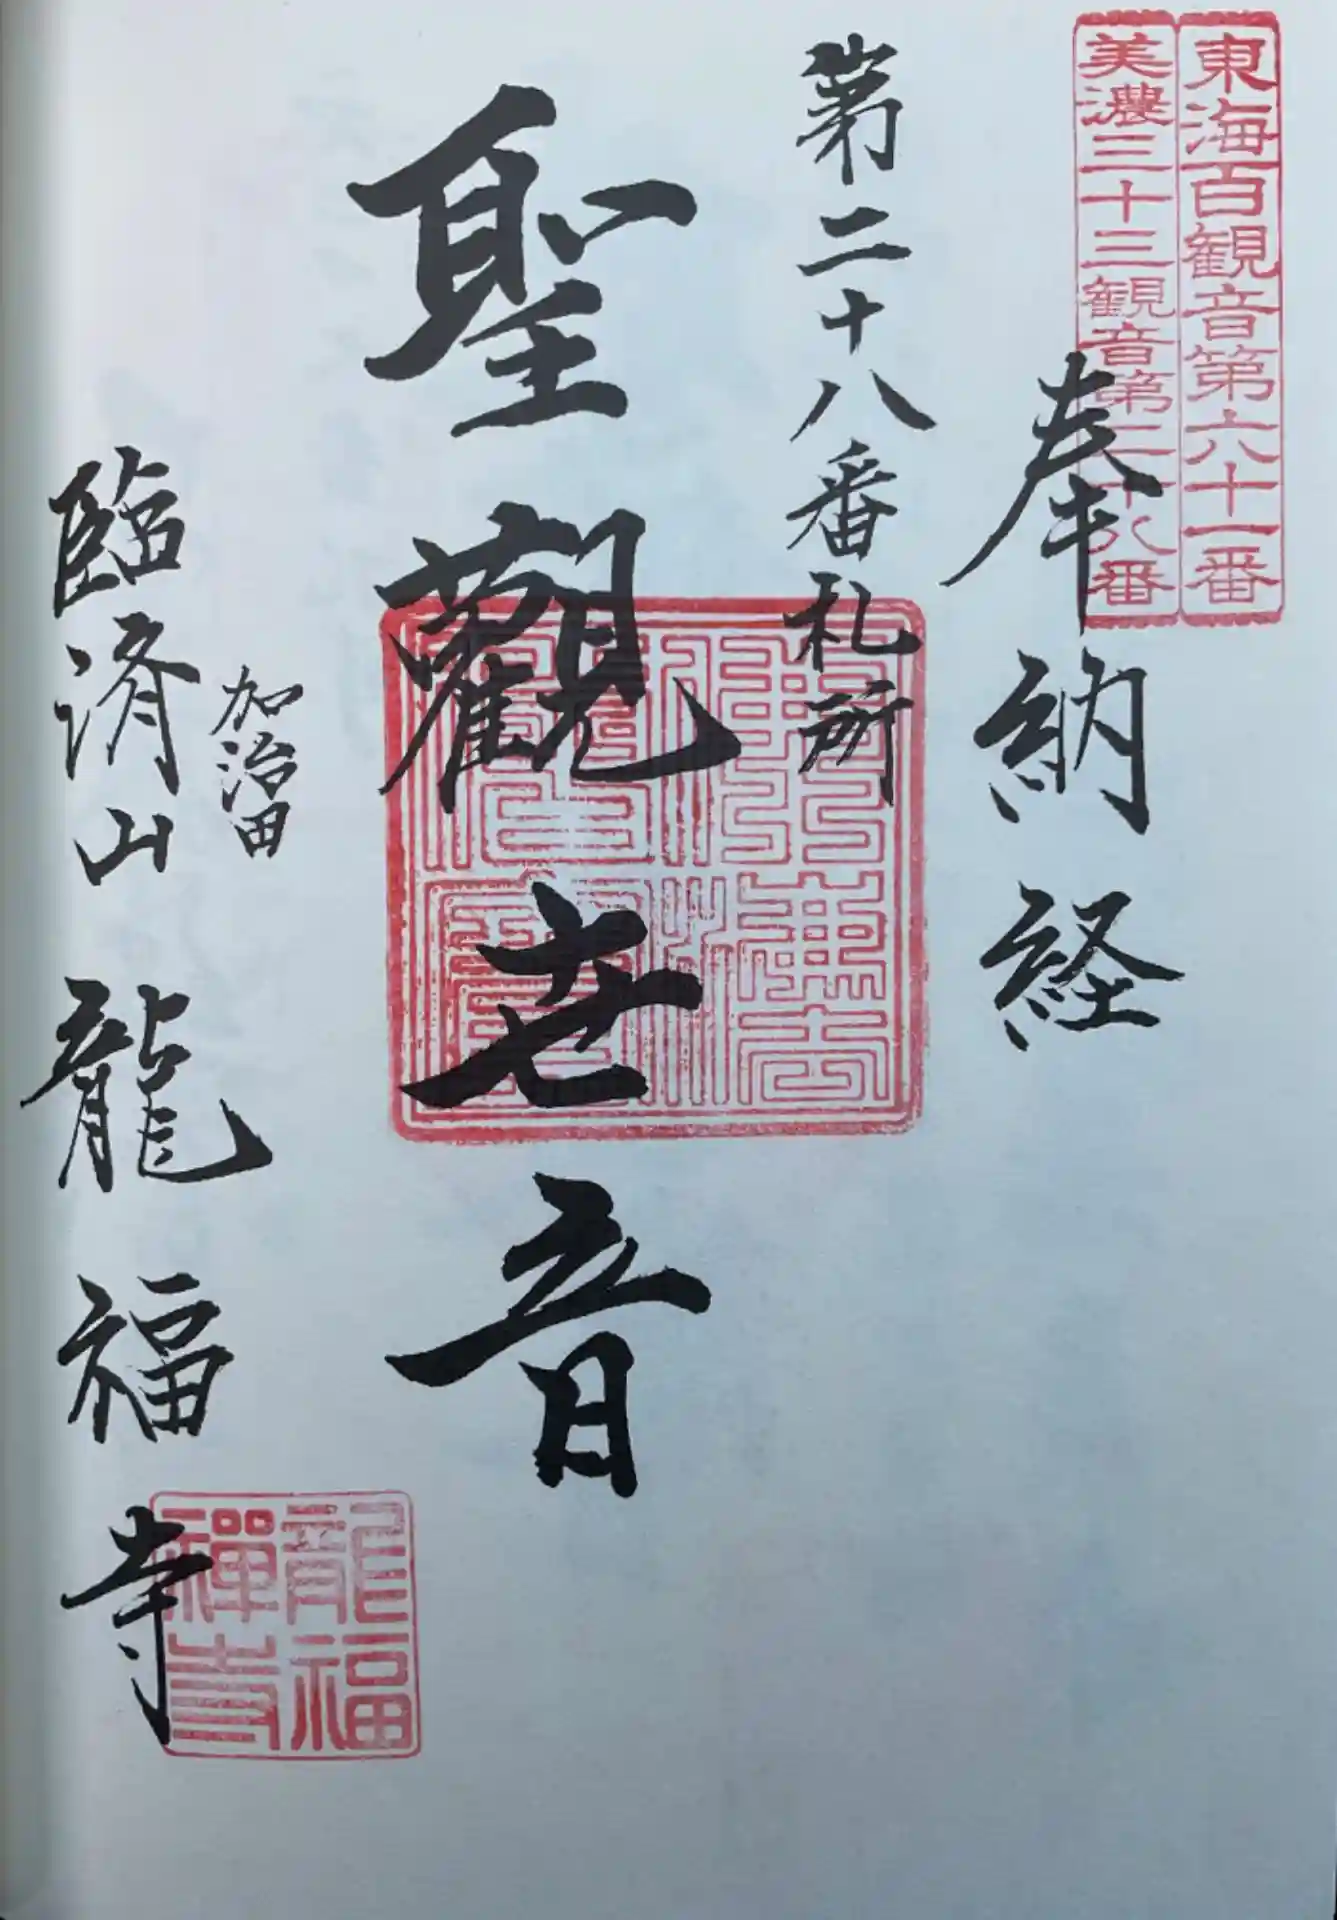 東海百観音第六十一番
美濃三十三観音第二十八番
奉納経
第二十八番札所
聖觀世音
加治田
臨済山龍福寺
佛法僧寶
龍福
禅寺